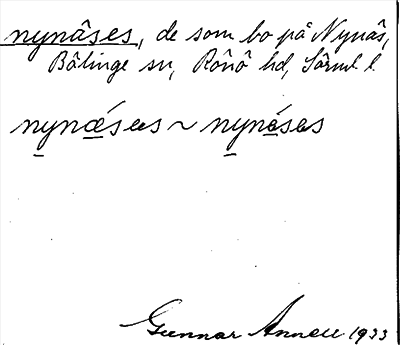 nynâses, de som bo på Nynâs,
Bâlinge sn, Rônô hd, Sôrml l
nynǽsɐs ~ nynǿsɐs
Gunnar Annell 1933